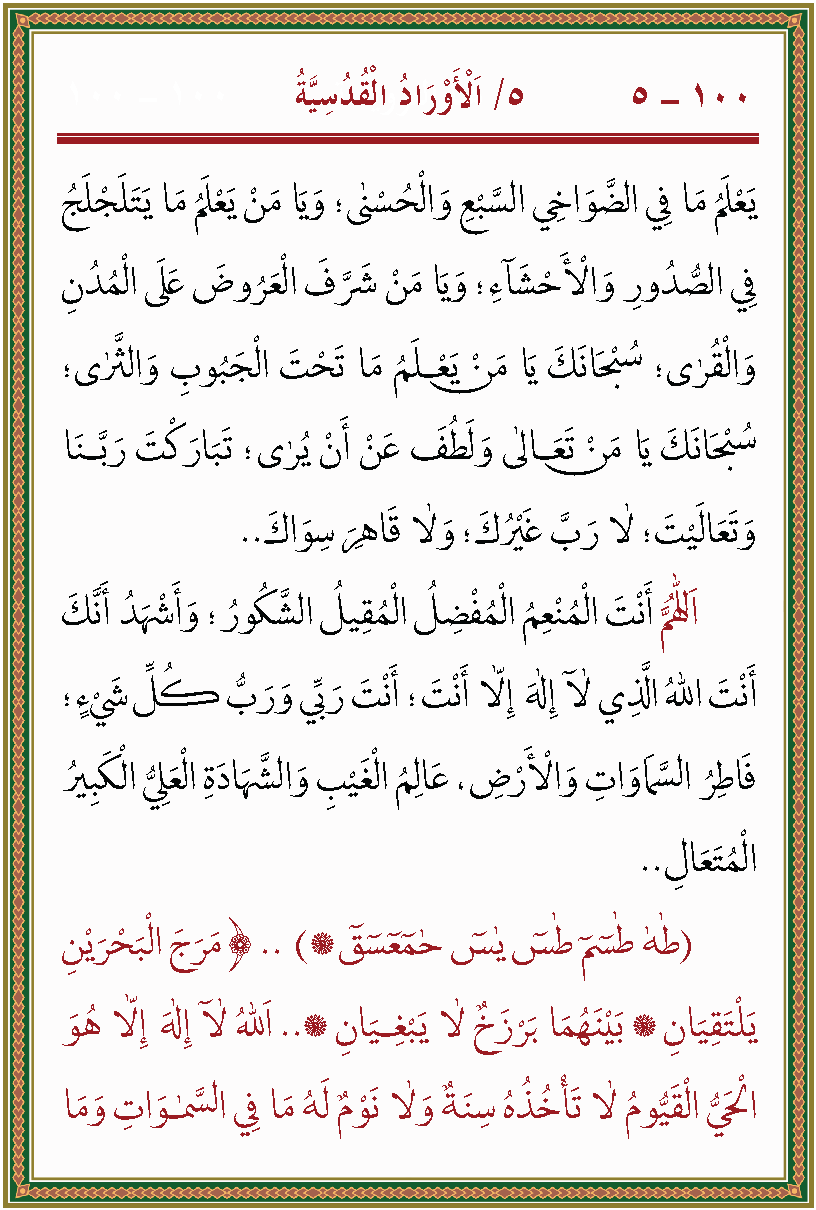 ١٠٠ ــ ٥ ٥/ اَلْأَوْرَادُ الْقُدُسِيَّةُ
يَعْلَمُ مَا فِي الضَّوَاخِي السَّبْعِ وَالْحُسْنٰى؛ وَيَا مَنْ يَعْلَمُ مَا يَتَلَجْلَجُ
فِي الصُّدُورِ وَالْأَحْشَآءِ؛ وَيَا مَنْ شَرَّفَ الْعُرُوضَ عَلَى الْمُدُنِ
وَالْقُرٰى؛ سُبْحَانَكَ يَا مَنْ يَعْـلَمُ مَا تَحْتَ الْجَبُوبِ وَالثَّرٰى؛
سُبْحَانَكَ يَا مَنْ تَعَـالٰى وَلَطُفَ عَنْ أَنْ يُرٰى؛ تَبَارَكْتَ رَبَّـنَا
وَتَعَالَيْتَ؛ لٰا رَبَّ غَيْرُكَ؛ وَلٰا قَاهِرَ سِوَاكَ..
اَللّٰهُمَّ أَنْتَ الْمُنْعِمُ الْمُفْضِلُ الْمُقِيلُ الشَّكُورُ؛ وَأَشْهَدُ أَنَّكَ
أَنْتَ اللهُ الَّذِي لٰآ إِلٰهَ إِلّٰا أَنْتَ؛ أَنْتَ رَبِّي وَرَبُّ كُلِّ شَيْءٍ؛
فَاطِرُ السَّمَاوَاتِ وَالْأَرْضِ، عَالِمُ الْغَيْبِ وَالشَّهَادَةِ الْعَلِيُّ الْكَبِيرُ
الْمُتَعَالِ..
(طٰهٰ طٰسٓمٓ طٰسٓ يٰسٓ حٰمٓعٓسٓقٓ ۞) .. ﴿مَرَجَ الْبَحْرَيْنِ
يَلْتَقِيَانِ ۞ بَيْنَهُمَا بَرْزَخٌ لٰا يَبْغِـيَانِ ۞.. اَللهُ لٰآ إِلٰهَ إِلّٰا هُوَ
الْحَيُّ الْقَيُّومُ لٰا تَأْخُذُهُ سِنَةٌ وَلٰا نَوْمٌ لَهُ مَا فِي السَّمٰـوَاتِ وَمَا